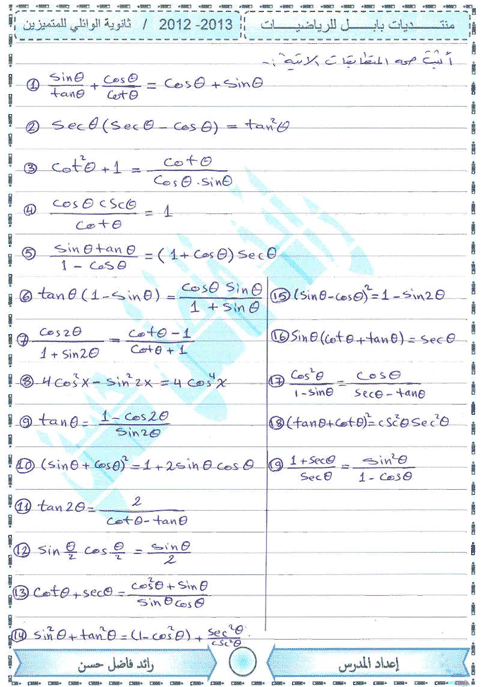 منتديات بابل للرياضيات
2012 -2013 / ثانوية الوائلي للمتميزين
أثبت صحة المتطابقات الآتية :-
① sinθ/tanθ + cosθ/cotθ = cosθ + sinθ
② secθ(secθ - cosθ) = tan²θ
③ cot²θ + 1 = cotθ/(cosθ.sinθ)
④ cosθ cscθ/cotθ = 1
⑤ sinθ tanθ/(1 - cosθ) = (1 + cosθ) secθ
⑥ tanθ(1 - sinθ) = cosθ sinθ/(1 + sinθ)
⑦ cos2θ/(1 + sin2θ) = (cotθ - 1)/(cotθ + 1)
⑧ 4cos²x - sin²2x = 4cos⁴x
⑨ tanθ = (1 - cos2θ)/sin2θ
⑩ (sinθ + cosθ)² = 1 + 2sinθ cosθ
⑪ tan2θ = 2/(cotθ - tanθ)
⑫ sin θ/2 cos θ/2 = sinθ/2
⑬ cotθ + secθ = (cos²θ + sinθ)/(sinθ cosθ)
⑭ sin²θ + tan²θ = (1 - cos²θ) + sec²θ/csc²θ
⑮ (sinθ - cosθ)² = 1 - sin2θ
⑯ sinθ(cotθ + tanθ) = secθ
⑰ cos²θ/(1 - sinθ) = cosθ/(secθ - tanθ)
⑱ (tanθ + cotθ)² = csc²θ sec²θ
⑲ (1 + secθ)/secθ = sin²θ/(1 - cosθ)
إعداد المدرس
رائد فاضل حسن